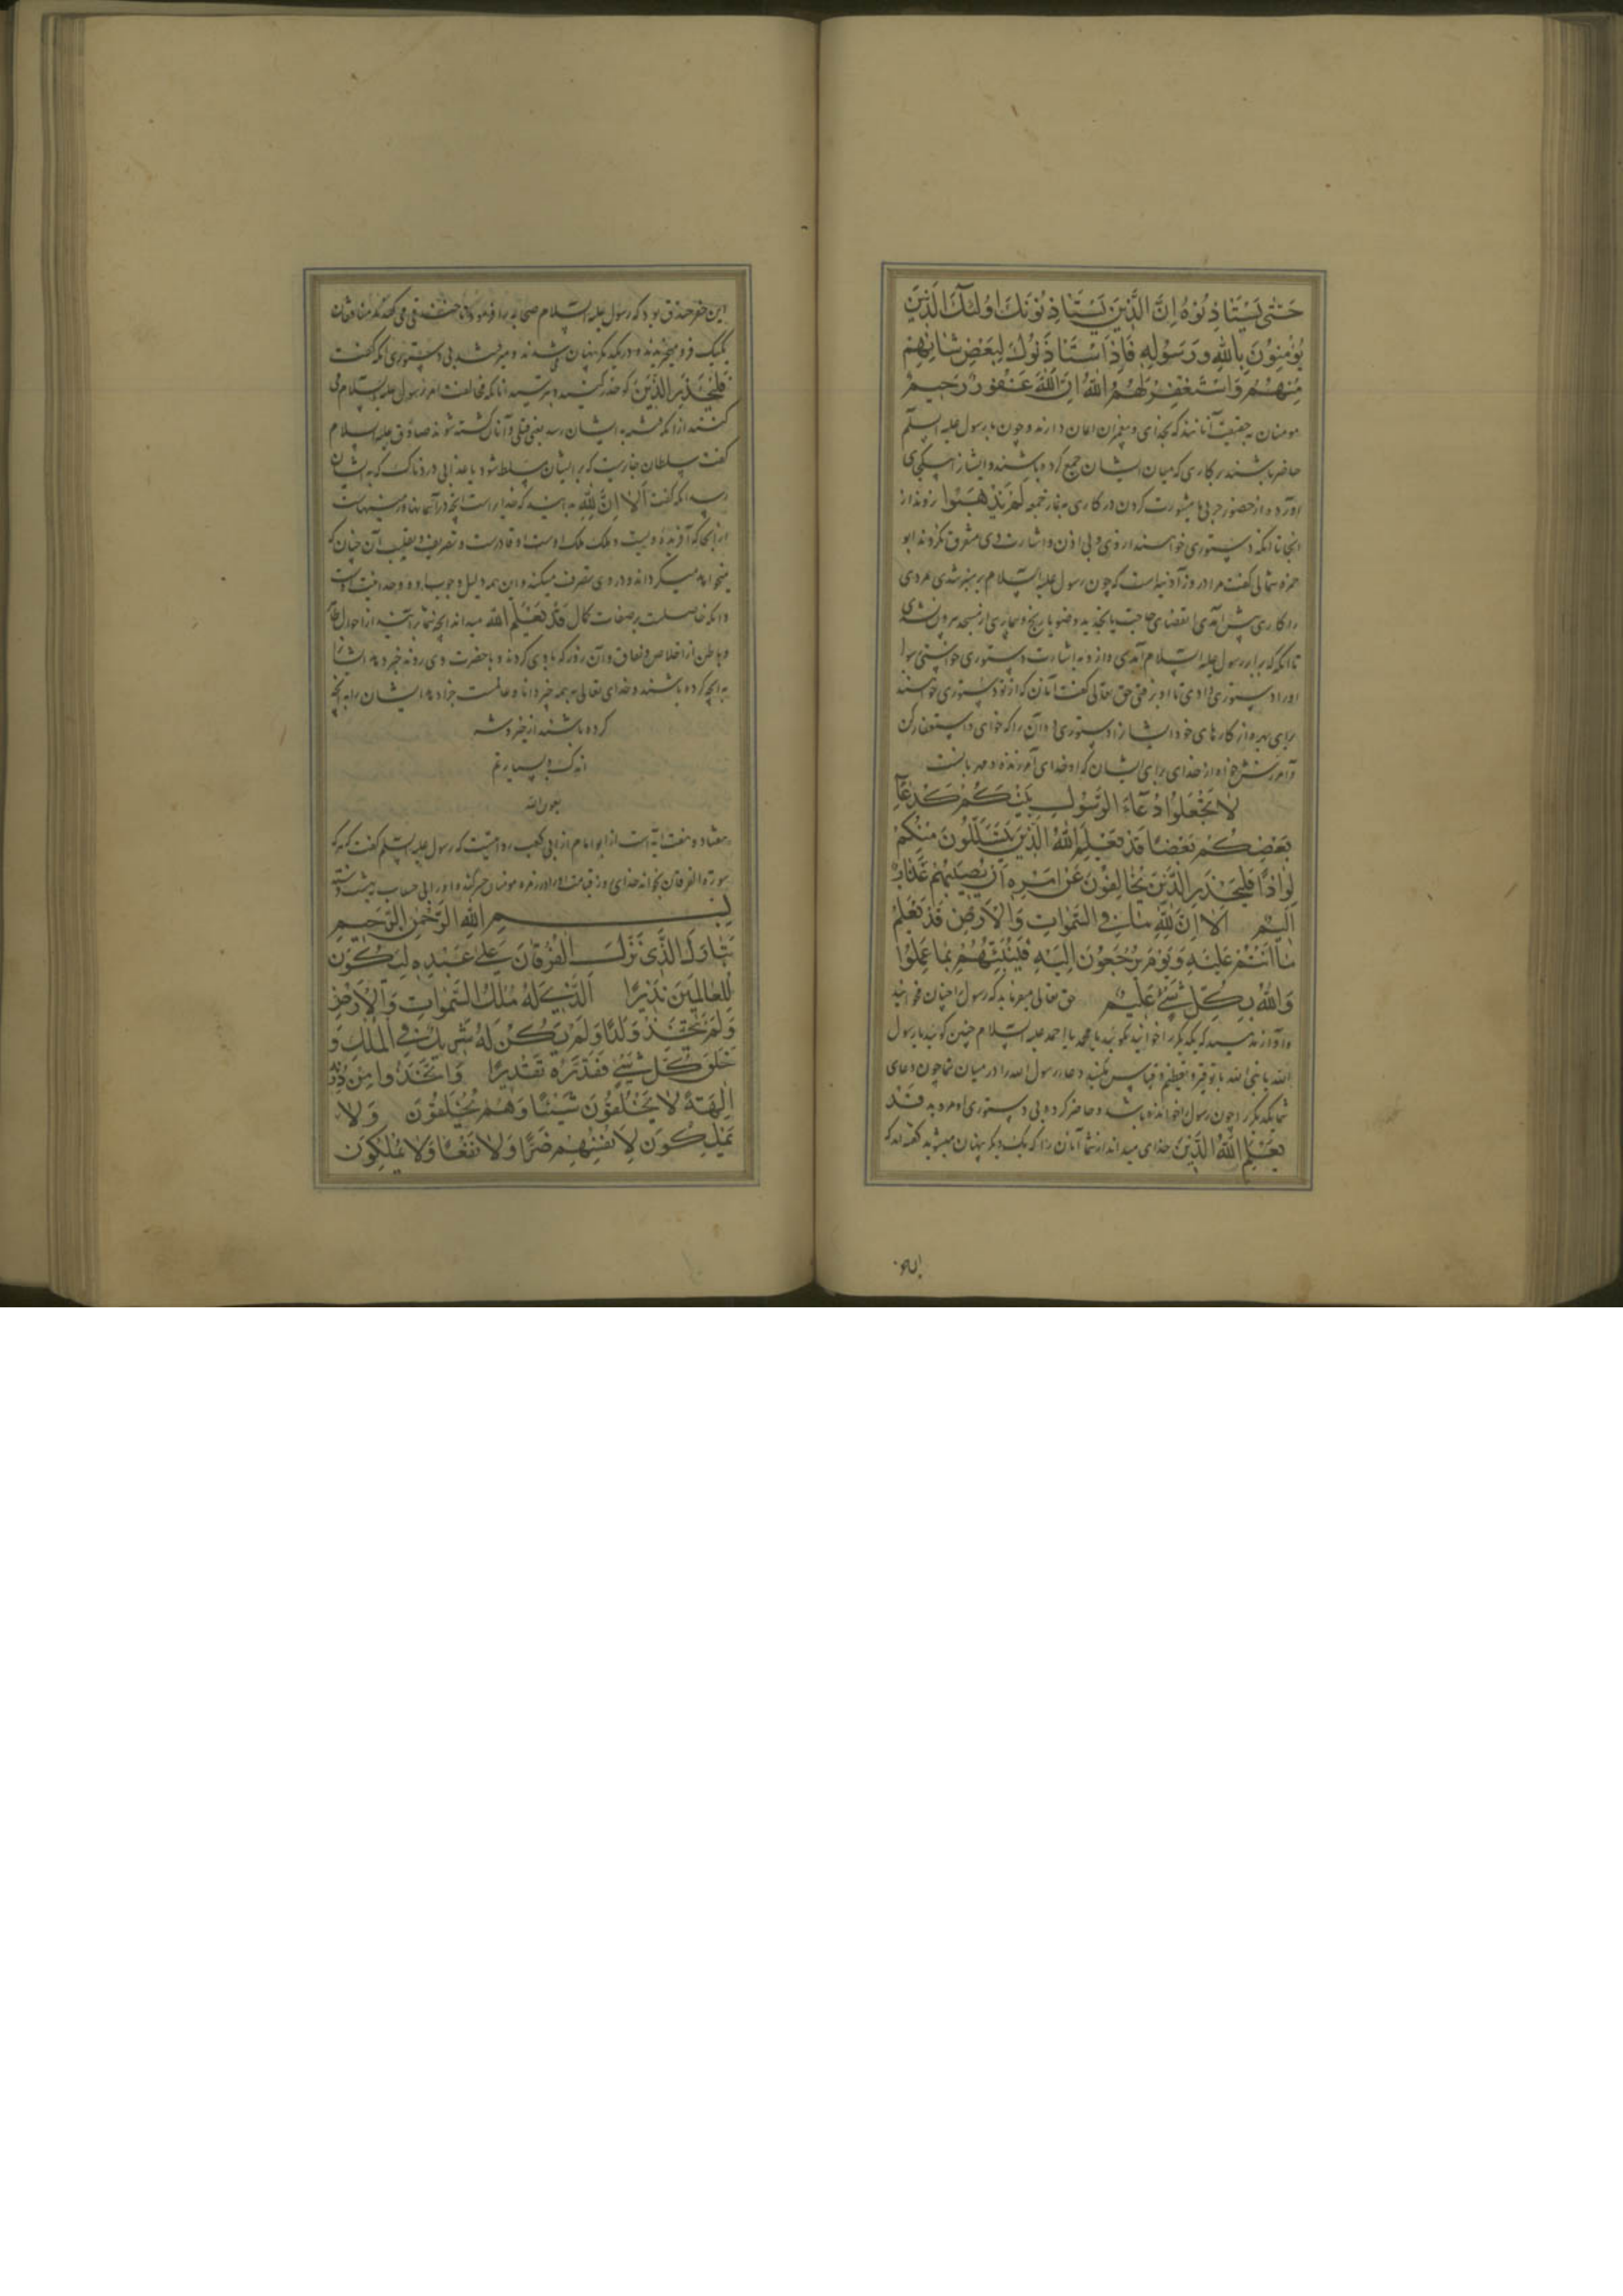 حَتّٰى يَسْتَاذِنُوهُ اِنَّ الَّذينَ يَسْتَاذِنُونَكَ اُولٰئِكَ الَّذينَ
يُؤْمِنُونَ بِاللهِ وَرَسُولِهِ فَاِذَا اسْتَاذَنُوكَ لِبَعْضِ شَانِهِمْ
مِنْهُمْ وَاسْتَغْفِرْ لَهُمُ اللهَ اِنَّ اللهَ غَفُورٌ رَحيمٌ
مومنان به حقیقت آنانند که بخدای و پیغمبران ایمان دارند و چون با رسول علیه السلم
حاضر باشند بر کاری که میان ایشان جمع کرده باشند و ایشانرا بیکجای
آورده از حضور حربی یا مشورت کردن در کاری یا نماز جمعه لَمْ يَذْهَبُوا نروند از
انجا تا انکه دستوری خواهند از وی و بی اذن و اشارت وی متفرق نکردند ابو
حمزه ثمالی گفت مراد روز آدینه است که چون رسول علیه السلام بر منبر شدی مردی
را کاری پیش آمدی از قضای حاجت یا تجدید وضو یا رنج و بیماری از مسجد بیرون نشدی
تا انکه که برابر رسول علیه السلام آمدی و از و به اشارت دستوری خواستی رسول
او را دستوری دادی تا او برفتی حق تعالی گفت آنان که از تو دستوری خواهند
برای بهره از کارهای خود ایشانرا دستوری ده آن را که خواهی و استغفار کن
و آمرزش خواه از خدای برای ایشان که او خدای آمرزنده و مهربانست
لَا تَجْعَلُوا دُعَآءَ الرَّسُولِ بَيْنَكُمْ كَدُعَآءِ
بَعْضِكُمْ بَعْضًا قَدْ يَعْلَمُ اللهُ الَّذينَ يَتَسَلَّلُونَ مِنْكُمْ
لِوَاذًا فَلْيَحْذَرِ الَّذينَ يُخَالِفُونَ عَنْ اَمْرِهِ اَنْ يُصيبَهُمْ عَذَابٌ
اَليمٌ اَلَا اِنَّ لِلّٰهِ مَا فِى السَّمٰوَاتِ وَالْاَرْضِ قَدْ يَعْلَمُ
مَا اَنْتُمْ عَلَيْهِ وَيَوْمَ يُرْجَعُونَ اِلَيْهِ فَيُنَبِّئُهُمْ بِمَا عَمِلُوا
وَاللهُ بِكُلِّ شَىْءٍ عَليمٌ حق تعالی میفرماید که رسول را چنان مخوانید
و آواز مدهید که یکدیگر را خوانید نگوئید یا محمد یا احمد علیه السلام چنین گوئید یا رسول
الله یا نبی الله با توقیر و تعظیم و قیاس نکنید دعاء رسول الله را در میان شما چون دعای
شما یکدیگر را چون رسول خوانده باشد و حاضر کرده بی دستوری او مروید قَدْ
يَعْلَمُ اللهُ الَّذينَ خدای میداند از شما آنان را که بیک دیکر پنهان میشوید گفته اند که
این حفر خندق بود که رسول علیه السلام صحابه را فرمود تا خندقی می کندند منافقان
یکیک فرو میخزیدند و در یکدیگر پنهان می شدند و میرفتند بی دستوری انکه گفت
فَلْيَحْذَرِ الَّذينَ کو حذر کنید و بترسید آنانکه مخالفت امر رسول علیه السلام می
کنند از انکه فتنه به ایشان رسد یعنی قتل و آنان کشته شوند صادق علیه السلام
گفت سلطان جایرست که بر ایشان مسلط شود یا عذابی دردناک که به ایشان
رسد انکه گفت اَلَا اِنَّ لِلّٰهِ بدانید که خدایراست انچه در آسمانها و زمینهاست
از انجا که آفریده ویست و ملک ملک اوست و او قادرست و تصریف و تقلیب آن چنان که
میخواهد میگرداند و در وی تصرف میکند و این همه دلیل وجوب وجود و وحدانیت اوست
و انکه حاصلست بر صفات کمال قَدْ يَعْلَمُ الله میداند انچه شما بر آنید از احوال ظاهر
و باطن از اخلاص و نفاق و آن روز که با وی گردند و با حضرت وی روند خبر دهد ایشانرا
به انچه کرده باشند و خدای تعالی به همه چیز دانا و عالمست جزا دهد ایشان را به انچه
کرده باشند از خیر و شر
اندک و بسیار تم
بعون الله
هفتاد و هفت آیه است از ابو امامه از ابی کعب روایتست که رسول علیه السلم گفت که هر که
سورة الفرقان بخواند خدای روز قیامت او را در زمره مومنان حشر کند و او را بی حساب به بهشت فرستد
بِسْمِ اللهِ الرَّحْمٰنِ الرَّحيمِ
تَبَارَكَ الَّذى نَزَّلَ الْفُرْقَانَ عَلٰى عَبْدِهِ لِيَكُونَ
لِلْعَالَمينَ نَذيرًا اَلَّذى لَهُ مُلْكُ السَّمٰوَاتِ وَالْاَرْضِ
وَلَمْ يَتَّخِذْ وَلَدًا وَلَمْ يَكُنْ لَهُ شَريكٌ فِى الْمُلْكِ وَ
خَلَقَ كُلَّ شَىْءٍ فَقَدَّرَهُ تَقْديرًا وَاتَّخَذُوا مِنْ دُونِهِ
اٰلِهَةً لَا يَخْلُقُونَ شَيْئًا وَهُمْ يُخْلَقُونَ وَلَا
يَمْلِكُونَ لِاَنْفُسِهِمْ ضَرًّا وَلَا نَفْعًا وَلَا يَمْلِكُونَ